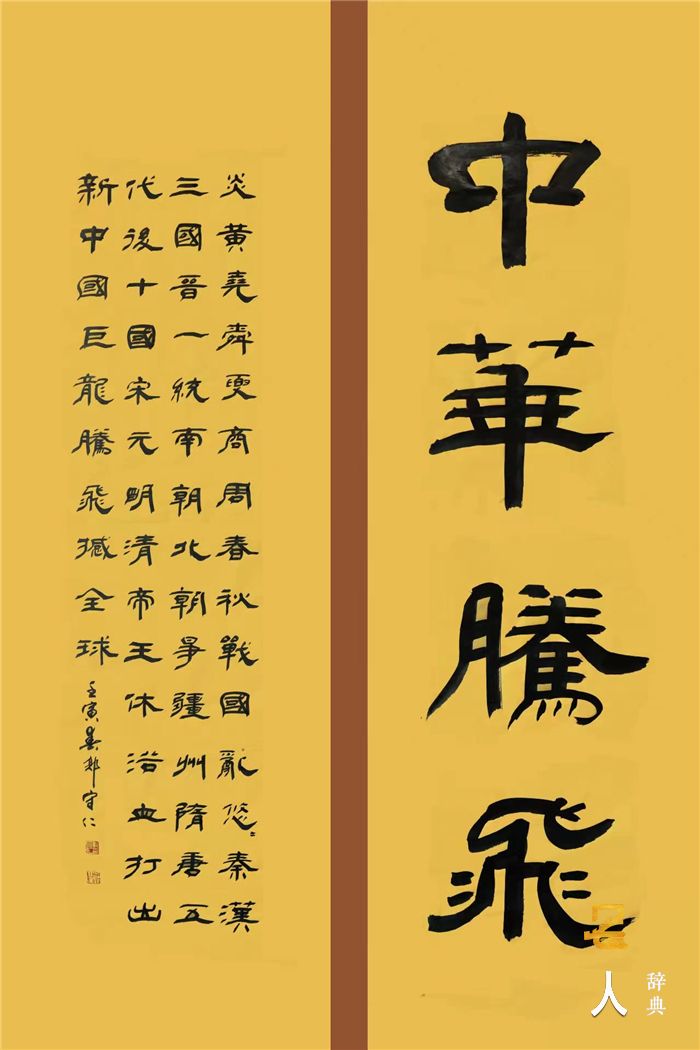 中華騰飛
炎黄堯舜夏商周春秋戰國亂悠〻秦漢
三國晉一統南朝北朝爭疆州隋唐五
代後十國宋元明清帝王休浴血打出
新中國巨龍騰飛撼全球
壬寅春守仁
名人辞典